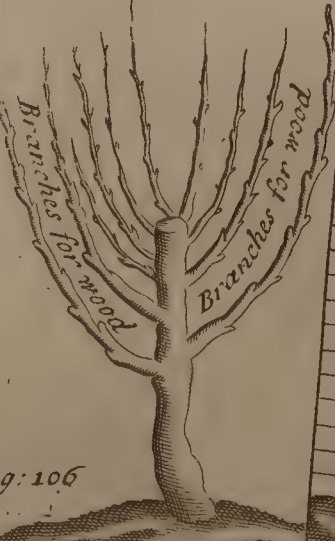 Branches for wood
Branches for wood
g: 106